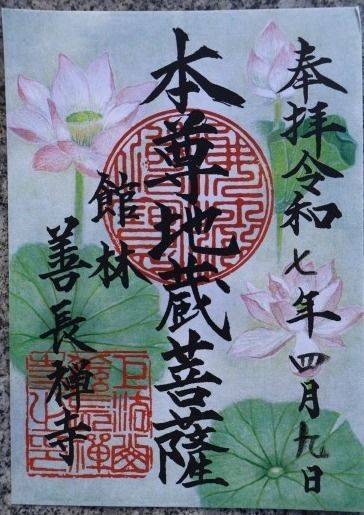 奉拝令和七年四月九日
本尊地蔵菩薩
館林
善長禅寺